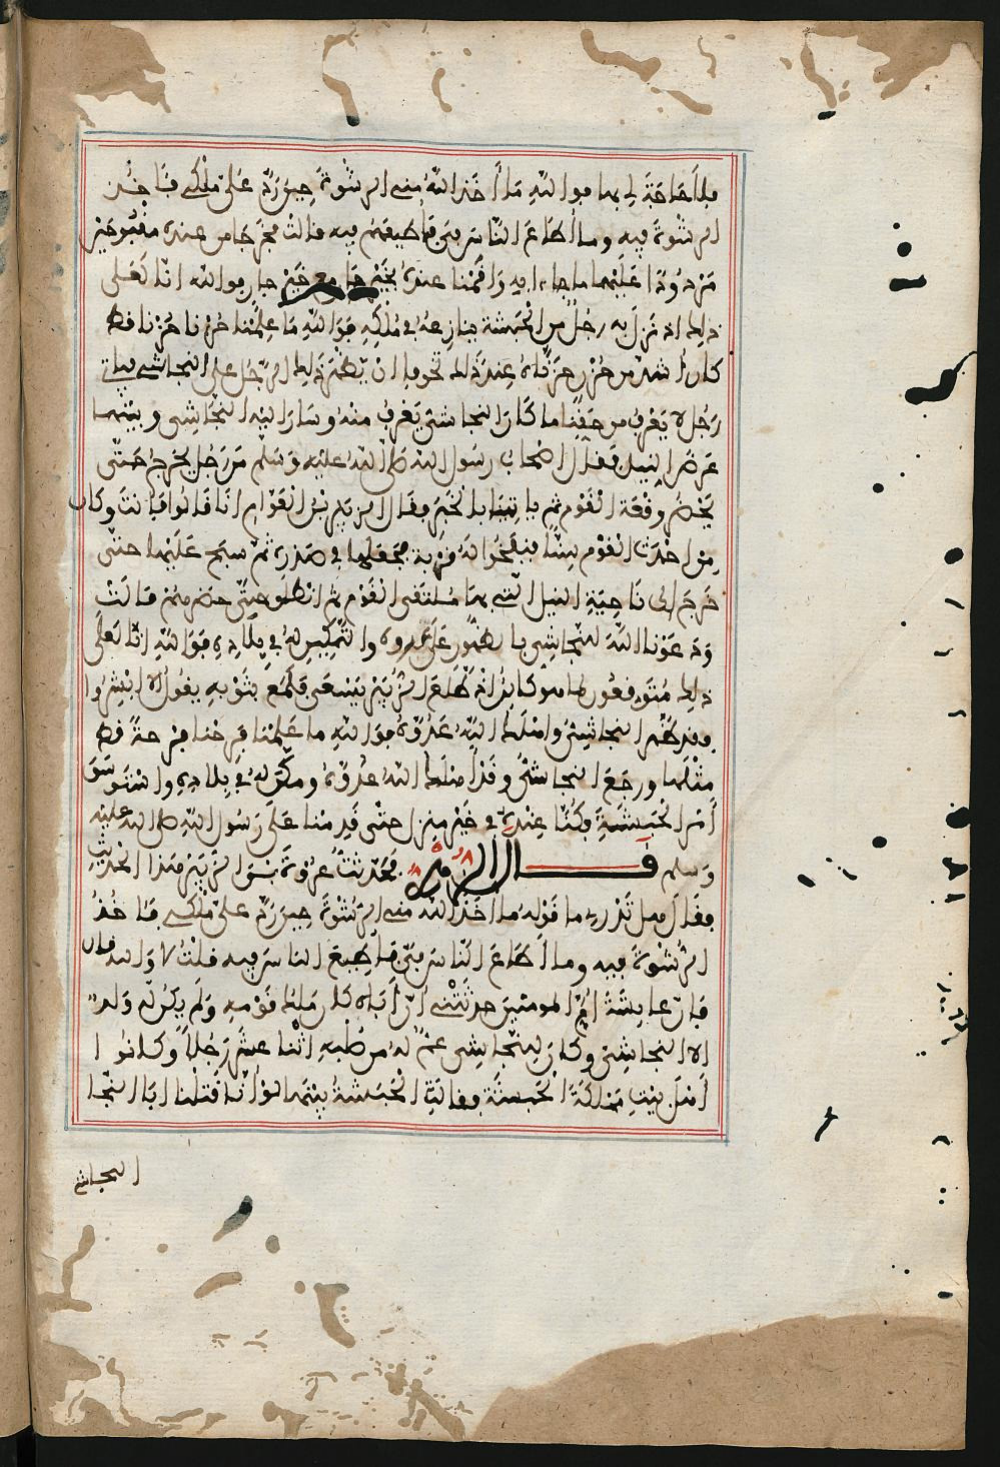 فلا حاجة لي بها فوالله ما أخذ الله مني الرشوة حين رد علي ملكي فآخذ
الرشوة فيه وما أطاع الناس في فأطيعهم فيه قالت فخرجا من عنده مقبوحين
مردودا عليهما ما جاءا به وأقمنا عنده بخير جار مع خير جار فوالله انا لعلى
ذلك اذ نزل به رجل من الحبشة ينازعه في ملكه فوالله ما علمنا حزنا حزنا قط
كان أشد من حزن حزناه عند ذلك تخوفا ان يظهر ذلك الرجل على النجاشي فيأتي
رجل لا يعرف من حقنا ما كان النجاشي يعرف منه وسار اليه النجاشي وبينهما
عرض النيل فقال أصحاب رسول الله صلى الله عليه وسلم من رجل يخرج حتى
يحضر وقعة القوم ثم يأتينا بالخبر فقال الزبير بن العوام انا قالوا فأنت وكان
من احدث القوم سنا فنفخوا له قربة فجعلها في صدره ثم سبح عليها حتى
خرج الى ناحية النيل التي بها ملتقى القوم ثم انطلق حتى حضرهم قالت
ودعونا الله للنجاشي بالظهور على عدوه والتمكين له في بلاده فوالله انا لعلى
ذلك متوقعون لما هو كائن اذ طلع الزبير يسعى فلمع بثوبه يقول ألا ابشروا
فقد ظهر النجاشي وأهلك الله عدوه فوالله ما علمنا فرحنا فرحة قط
مثلها ورجع النجاشي وقد أهلك الله عدوه ومكن له في بلاده واستوسق
أمر الحبشة فكنا عنده في خير منزل حتى قدمنا على رسول الله صلى الله عليه
وسلم قال الزهري فحدثت عروة بن الزبير هذا الحديث
فقال هل تدري ما قوله ما أخذ الله مني الرشوة حين رد علي ملكي فآخذ
الرشوة فيه وما أطاع الناس في فأطيع الناس فيه قلت لا والله قال
فان عائشة أم المومنين حدثتني ان أباه كان ملك قومه ولم يكن له ولد
الا النجاشي وكان للنجاشي عم له من صلبه اثنا عشر رجلا وكانوا
أهل بيت مملكة الحبشة فقالت الحبشة بينها لو أنا قتلنا ابا النجا
النجاشي